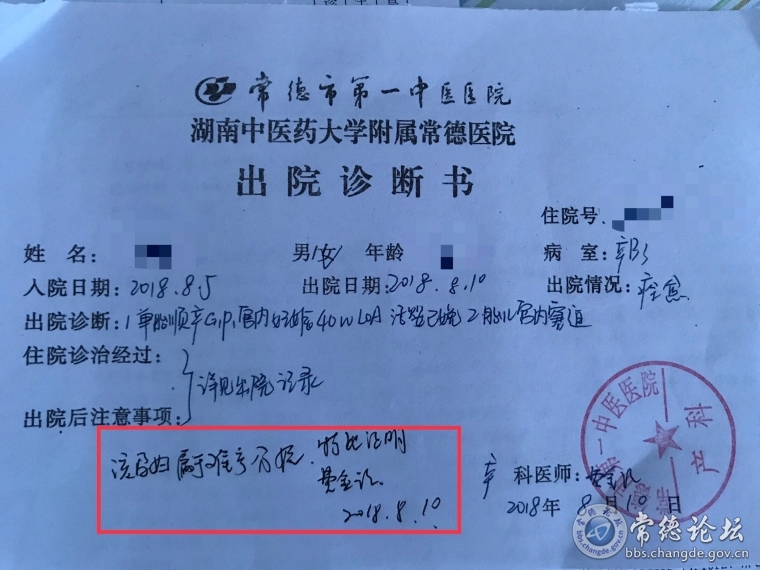 常德市第一中医医院
湖南中医药大学附属常德医院
出院诊断书
住院号:
姓 名: 男/女 年龄 病 室: 产科
入院日期: 2018.8.5 出院日期: 2018.8.10 出院情况: 痊愈
出院诊断: 1 单胎顺产G1P1宫内妊娠40W LOA 活婴已娩 2 胎儿宫内窘迫
住院诊治经过:
详见出院记录
出院后注意事项:
该孕妇属于难产分娩,特此证明
2018.8.10
产 科医师:
2018年8月10日
第一中医医院
产科
常德论坛
bbs.changde.gov.cn